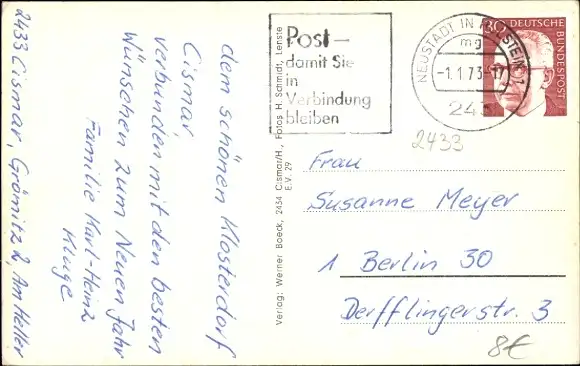 2433 Cismar, Grömitz 2, Am Heller
dem schönen Klosterdorf
Cismar,
verbunden mit den besten
Wünschen zum Neuen Jahr
Familie Karl-Heinz
Kluge
Verlag: Werner Boeck, 2434 Cismar/H., Fotos H. Schmidt, Lenste
E.V. 29
Post –
damit Sie
in
Verbindung
bleiben
NEUSTADT IN HOLSTEIN 1
mg
-1.1.73-17
243
30 DEUTSCHE
BUNDESPOST
2433
Frau
Susanne Meyer
1 Berlin 30
Derfflingerstr. 3
8€